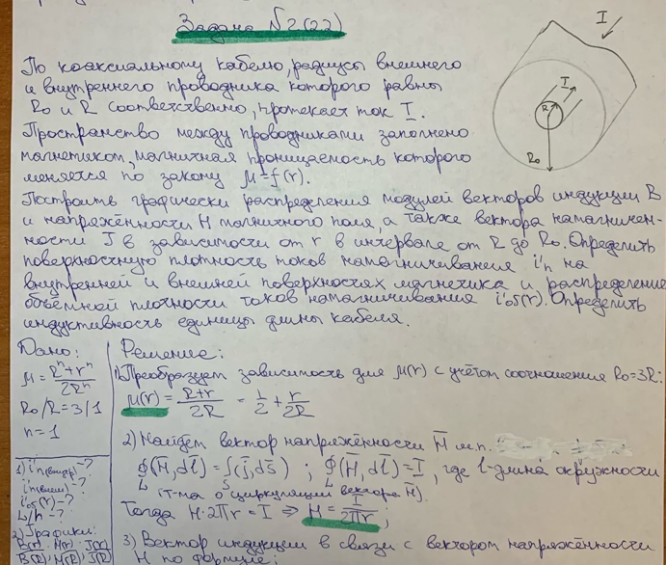 Задача №2(2.2)
I
I
R
R₀
По коаксиальному кабелю, радиусы внешнего
и внутреннего проводника которого равны
R₀ и R соответственно, протекает ток I.
Пространство между проводниками заполнено
магнетиком, магнитная проницаемость которого
меняется по закону μ=f(r).
Построить графически распределения модулей векторов индукции B
и напряжённости H магнитного поля, а также вектора намагничен-
ности J в зависимости от r в интервале от R до R₀. Определить
поверхностную плотность токов намагничивания i'п на
внутренней и внешней поверхностях магнетика и распределение
объёмной плотности токов намагничивания i'об(r). Определить
индуктивность единицы длины кабеля.
Дано:
μ=(Rⁿ+rⁿ)/(2Rⁿ)
R₀/R=3/1
n=1
1) i'п(внутр)-?
i'п(внеш)-?
i'об(r)-?
L/h-?
2) Графики:
B(r), H(r), J(r)
B(R), H(R), J(R)
Решение:
1) Преобразует зависимость для μ(r) с учётом соотношения R₀=3R:
μ(r)=(R+r)/(2R) = 1/2 + r/(2R)
2) Найдем вектор напряжённости H̄ м.п.
∮_L(H̄,dl̄)=∫_S(j̄,ds̄) ; ∮_L(H̄,dl̄)=I, где l-длина окружности
(т-ма о циркуляции вектора H̄).
Тогда H·2πr=I ⇒ H=I/(2πr);
3) Вектор индукции в связи с вектором напряжённости
H по формуле: